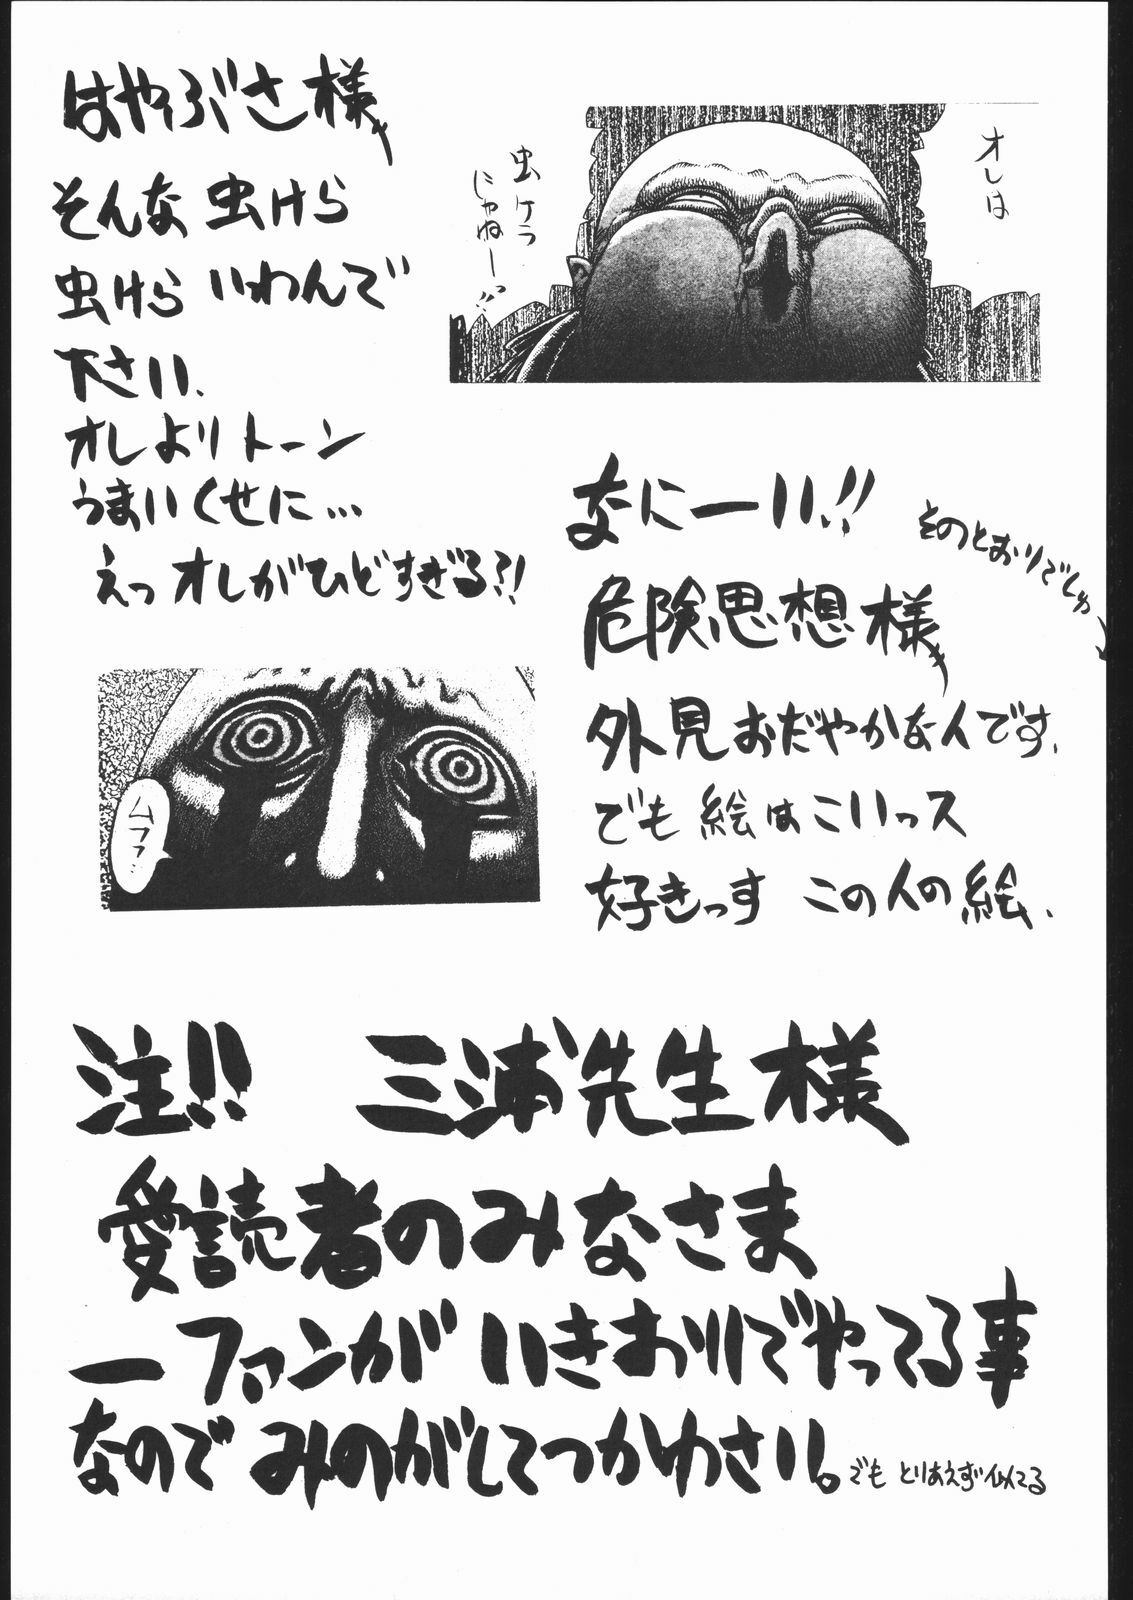 はやぶさ様
そんな虫けら
虫けらいわんで
下さい、
オレよりトーン
うまいくせに…
えっオレがひどすぎる?!
オレは
虫ケラ
じゃねーっ!!
なにーい!!
そのとおりでしゅ
危険思想様
外見おだやかな人です、
でも絵はこいっス
好きっす この人の絵、
ムフフ…
注!! 三浦先生様
愛読者のみなさま
一ファンがいきおいでやってる事
なのでみのがしてつかわさい。
でも とりあえず似てる